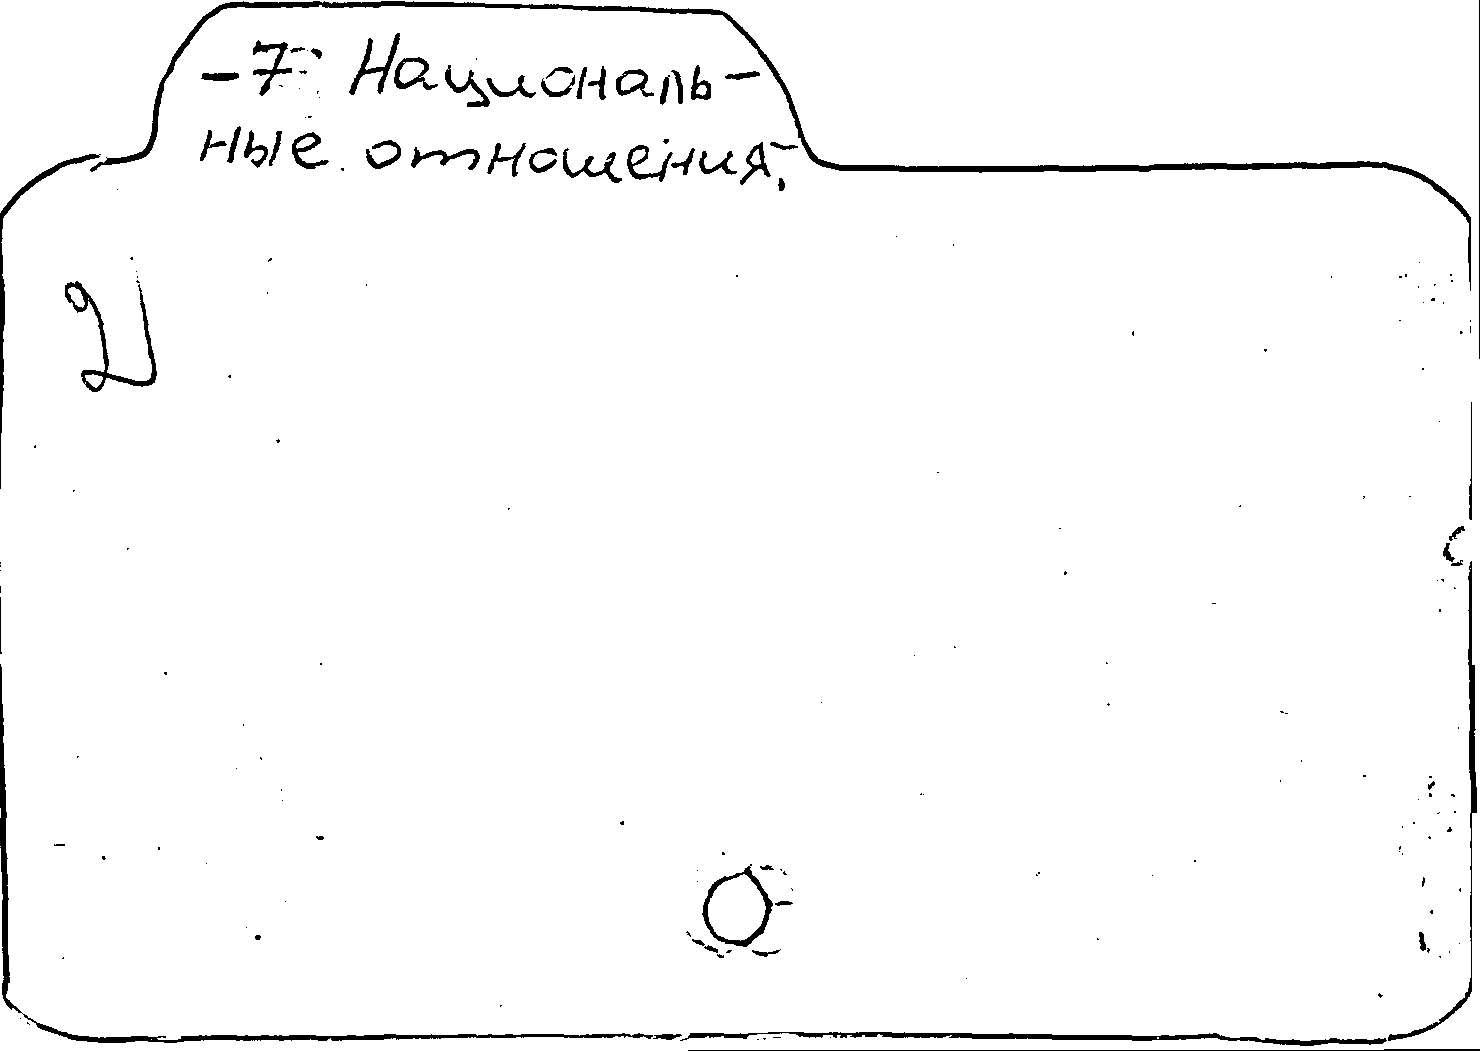 -7 Националь-
ные отношения.